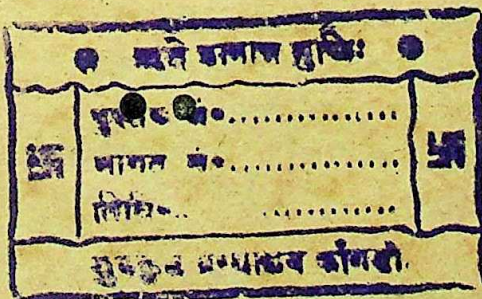 ऋते ज्ञानान्न मुक्तिः
पुस्तक सं०..............
आगत सं०..............
तिथि..............
गुरुकुल ग्रन्थालय काँगड़ी.